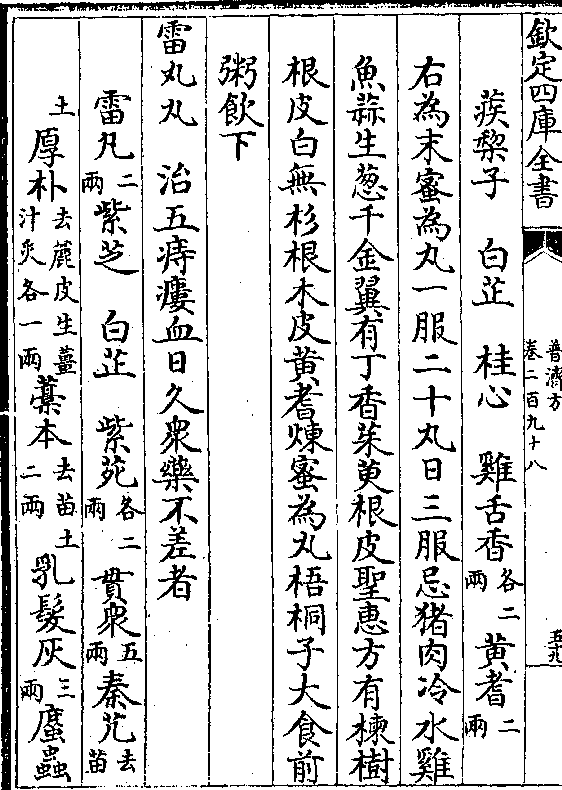 欽定四庫全書
普濟方
卷二百九十八
蒺藜子 白芷 桂心 雞舌香各二兩 黄耆二兩
右為末蜜為丸一服二十丸日三服忌猪肉冷水雞
魚蒜生葱千金翼有丁香茱萸根皮聖惠方有楝樹
根皮白無杉根木皮黄耆煉蜜為丸梧桐子大食前
粥飲下
雷丸丸 治五痔瘻血日久衆藥不差者
雷丸二兩 紫芝 白芷 紫菀各二兩 貫衆五兩 秦艽去苗
土 厚朴去麄皮生薑汁炙各一兩 藁本去苗土二兩 乳髮灰三兩 䗪蟲